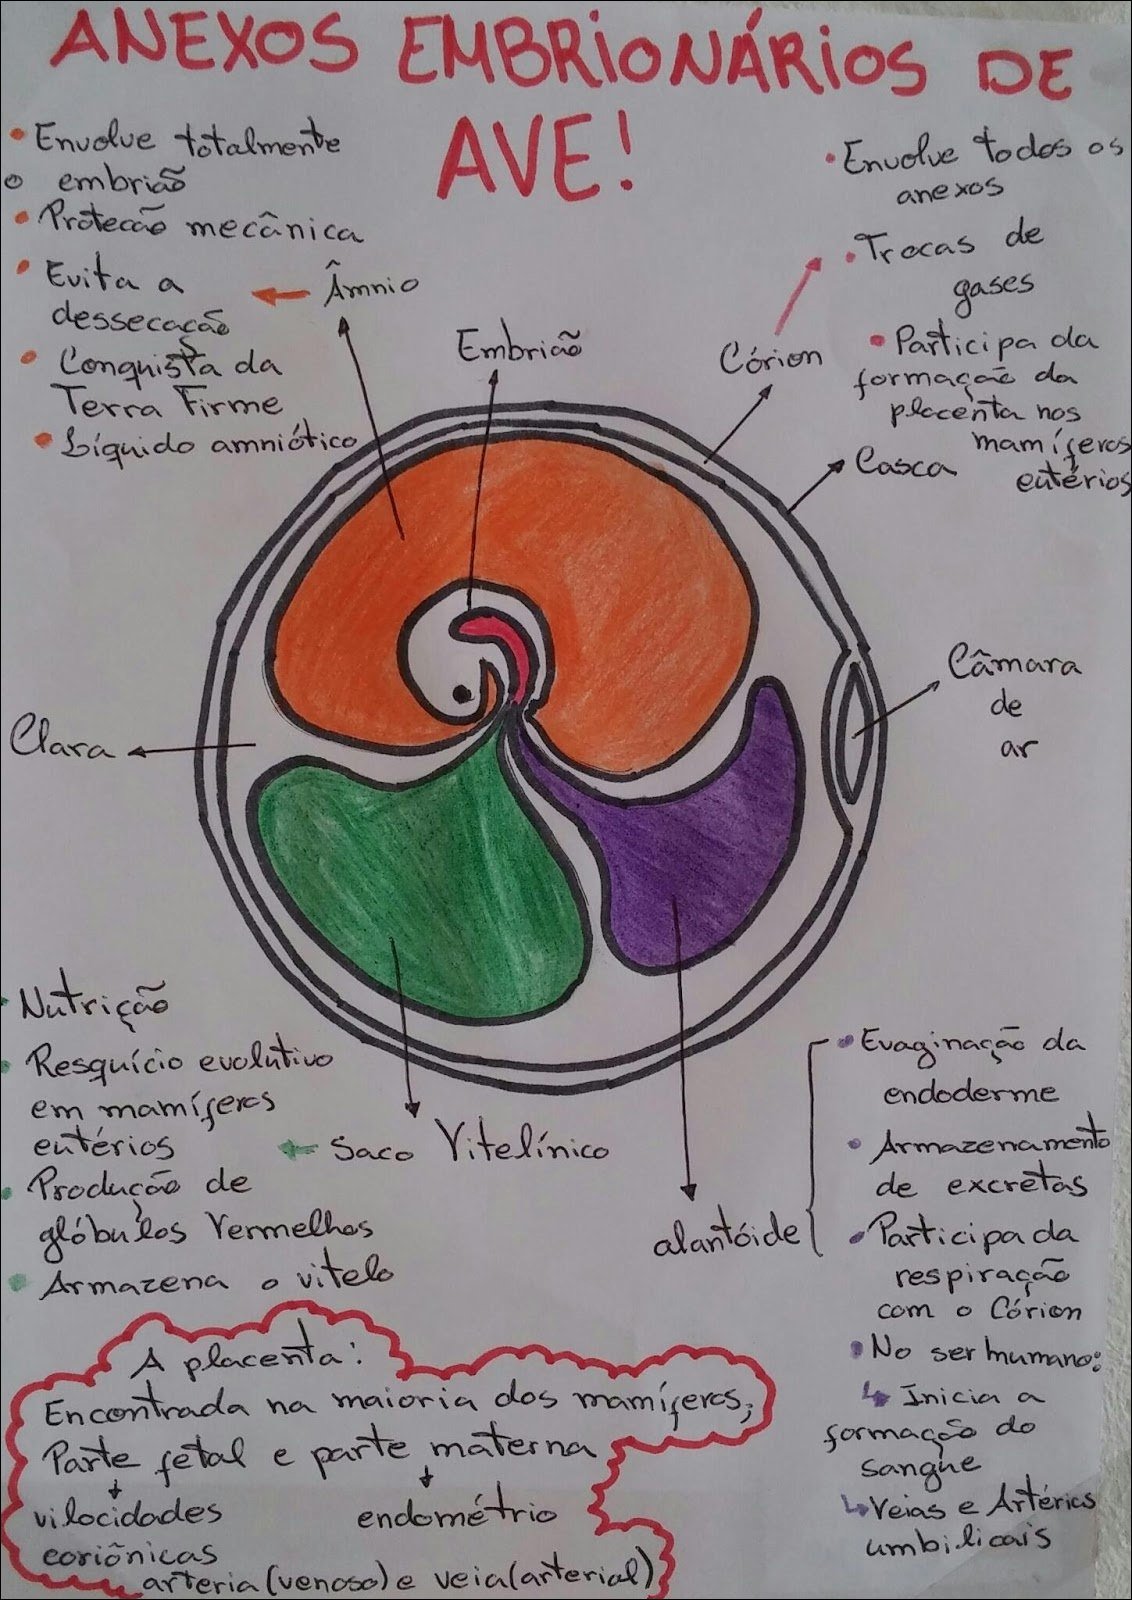 ANEXOS EMBRIONÁRIOS DE
AVE!
• Envolve totalmente
o embrião
• Proteção mecânica
• Evita a
dessecação
• Conquista da
Terra Firme
• Líquido amniótico
Âmnio
Embrião
Córion
• Envolve todos os
anexos
• Trocas de
gases
• Participa da
formação da
placenta nos
mamíferos
eutérios
Casca
Câmara
de
ar
Clara
• Nutrição
• Resquício evolutivo
em mamíferos
eutérios
• Produção de
glóbulos Vermelhos
• Armazena o vitelo
Saco Vitelínico
alantóide
• Evaginação da
endoderme
• Armazenamento
de excretas
• Participa da
respiração
com o Córion
• No ser humano:
↳ Inicia a
formação do
sangue
↳ Veias e Artérias
umbilicais
A placenta:
Encontrada na maioria dos mamíferos;
Parte fetal e parte materna
vilocidades
coriônicas
endométrio
arteria (venoso) e veia (arterial)